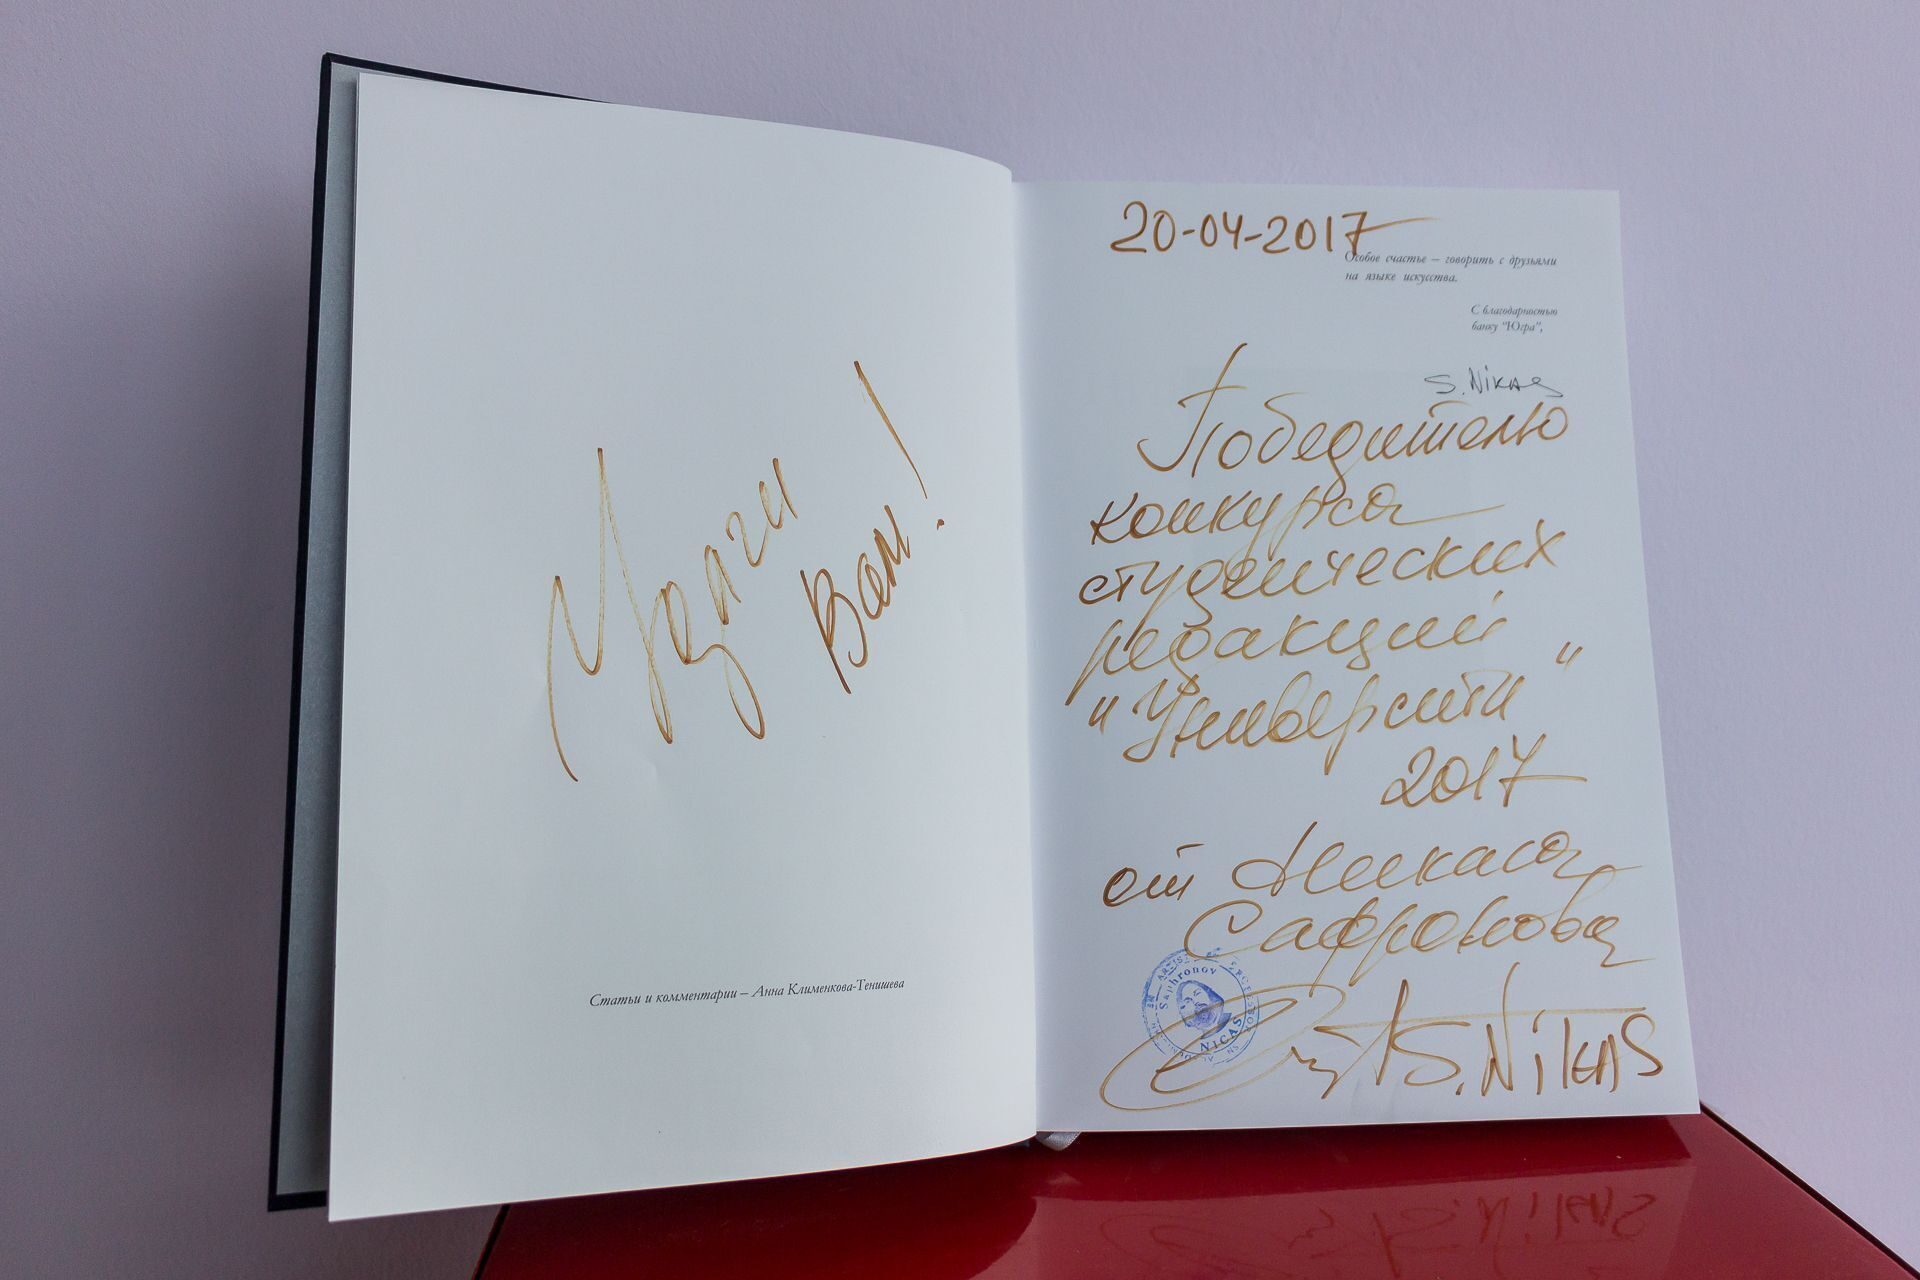 Удачи
Вам!
Статьи и комментарии – Анна Клименкова-Тенишева
20-04-2017
Особое счастье – говорить с друзьями
на языке искусства.
С благодарностью
банку "Югра",
S. Nikas
Победителю
конкурса
студенческих
редакций
"Университи"
2017
от Никаса
Сафронова
Saphronov
NICAS
S. NiKAS